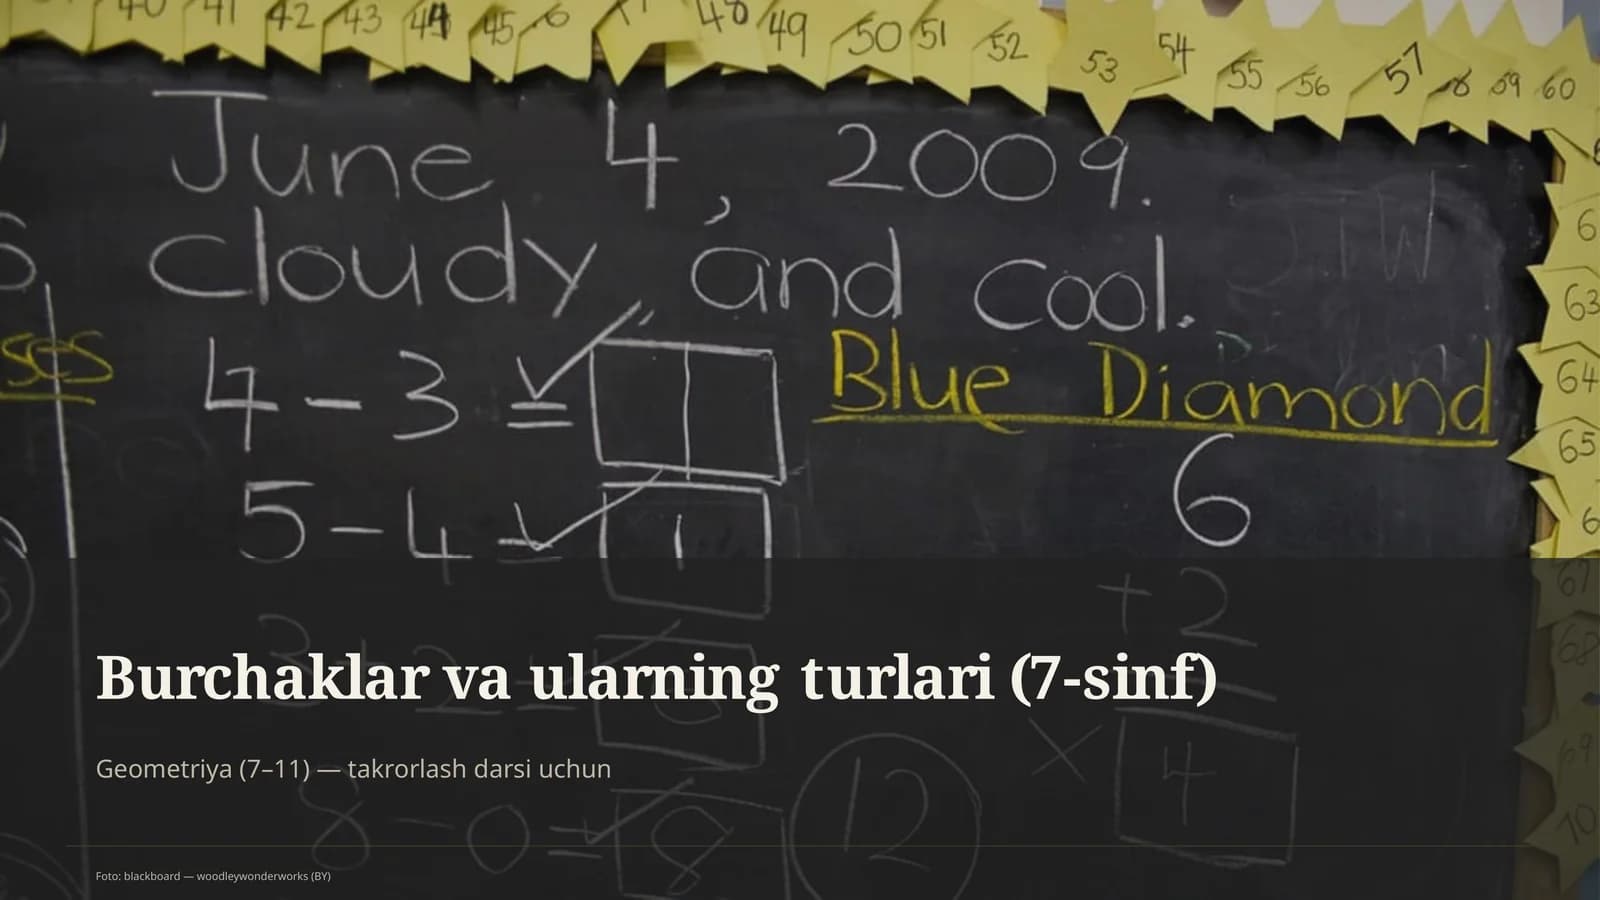 42 43 44 45 48 49 50 51 52 53 54 55 56 57 58 59 60
June 4, 2009.
cloudy, and cool.
63
64
65
4 - 3 = 1
Blue Diamond
5 - 4 = 1
6
+ 2
Burchaklar va ularning turlari (7-sinf)
Geometriya (7–11) — takrorlash darsi uchun
8 - 0 = 8
12
× 4
Foto: blackboard — woodleywonderworks (BY)